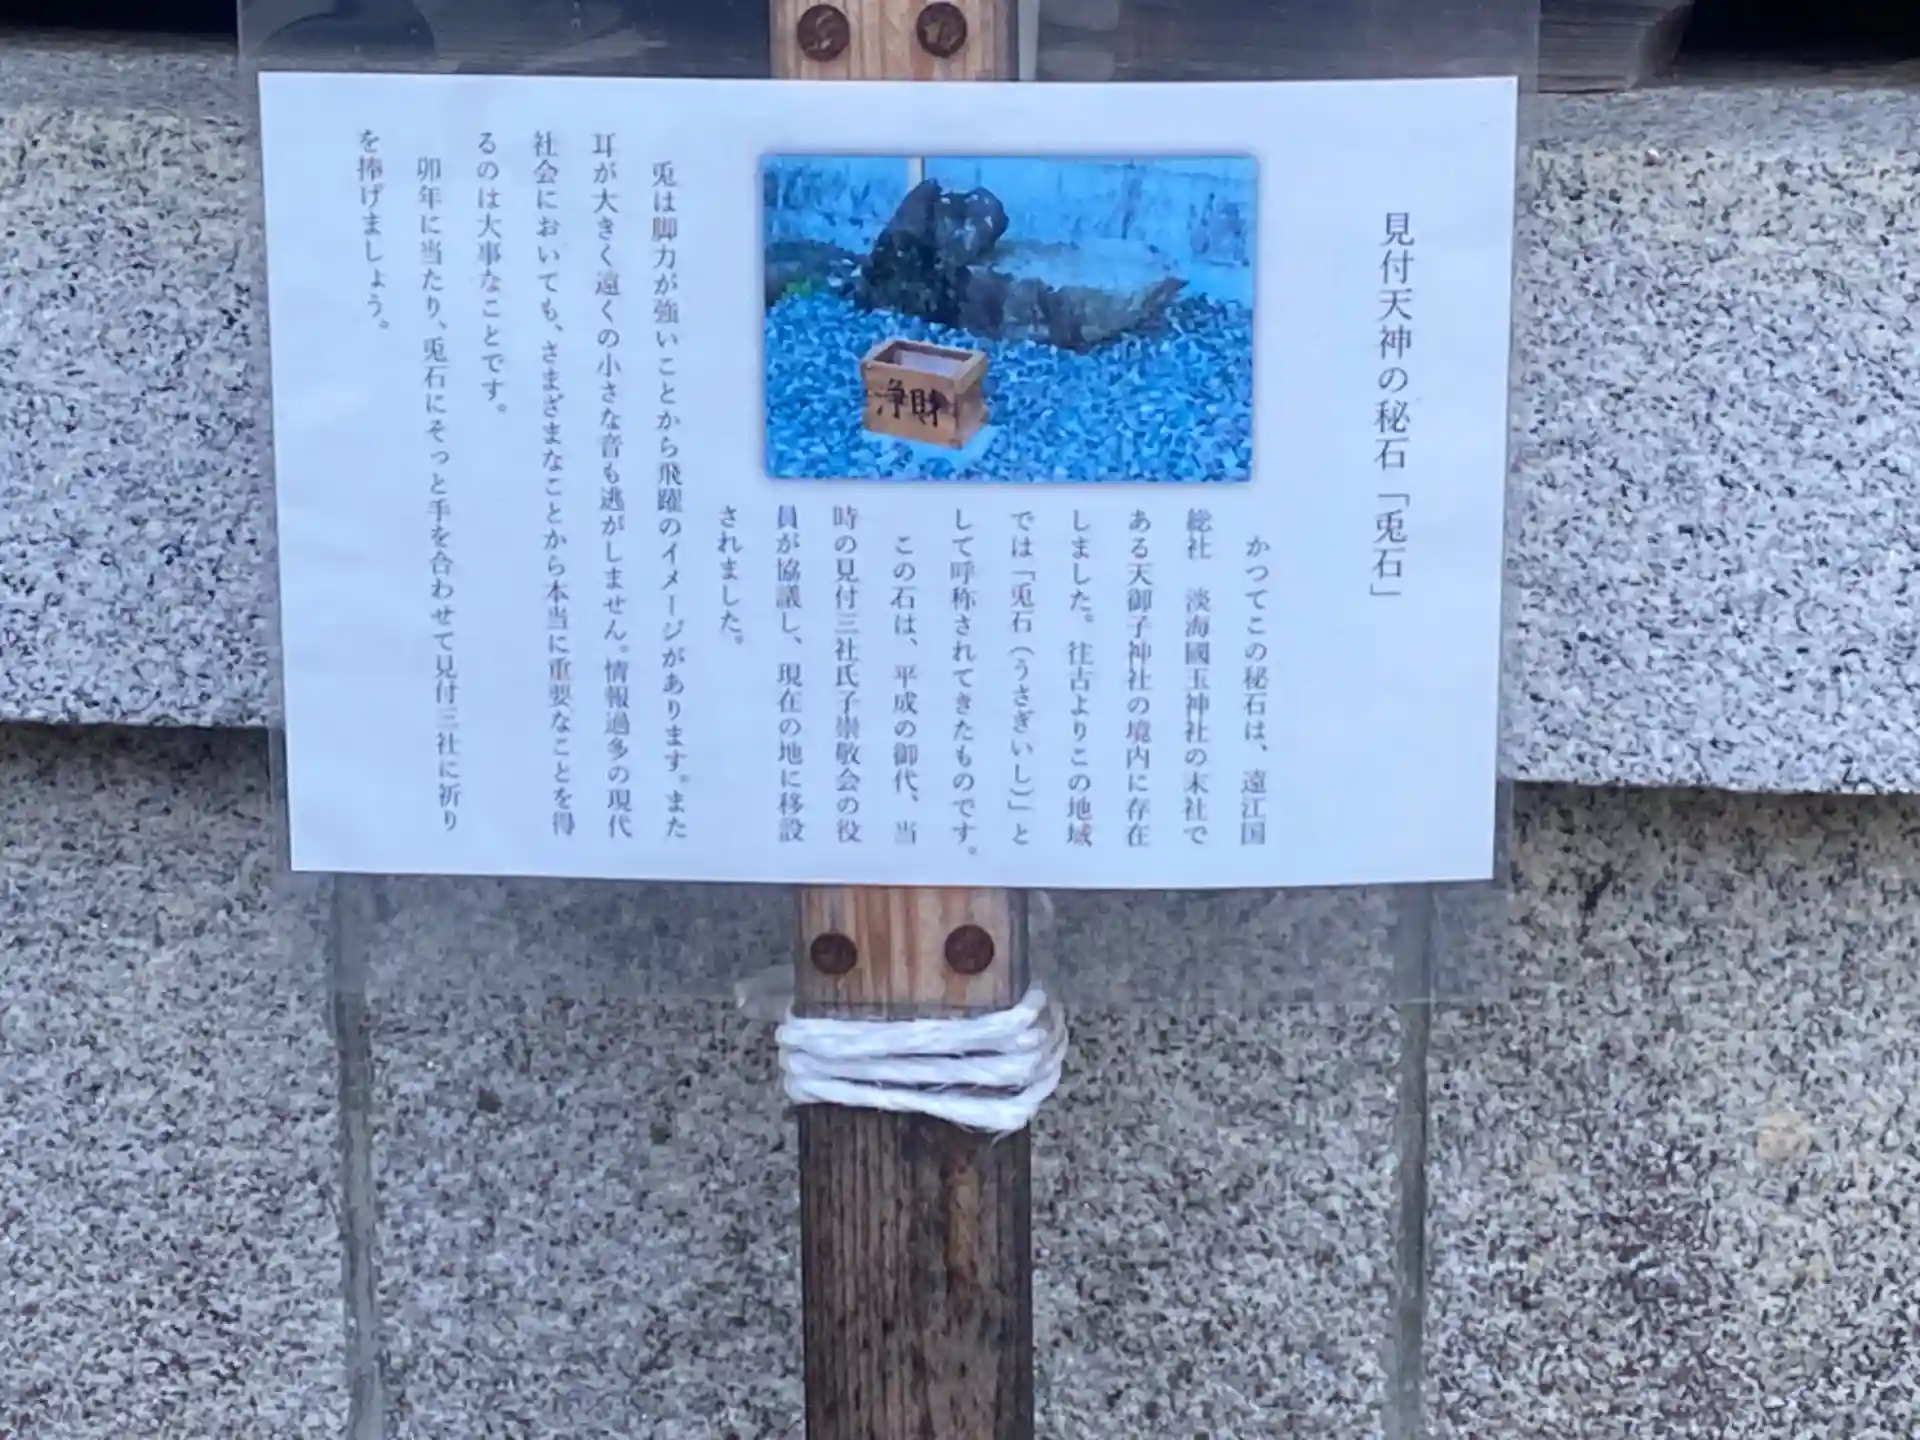 見付天神の秘石「兎石」
かつてこの秘石は、遠江国
総社　淡海國玉神社の末社で
ある天御子神社の境内に存在
しました。往古よりこの地域
では「兎石（うさぎいし）」と
して呼称されてきたものです。
この石は、平成の御代、当
時の見付三社氏子崇敬会の役
員が協議し、現在の地に移設
されました。
兎は脚力が強いことから飛躍のイメージがあります。また
耳が大きく遠くの小さな音も逃がしません。情報過多の現代
社会においても、さまざまなことから本当に重要なことを得
るのは大事なことです。
卯年に当たり、兎石にそっと手を合わせて見付三社に祈り
を捧げましょう。
浄財